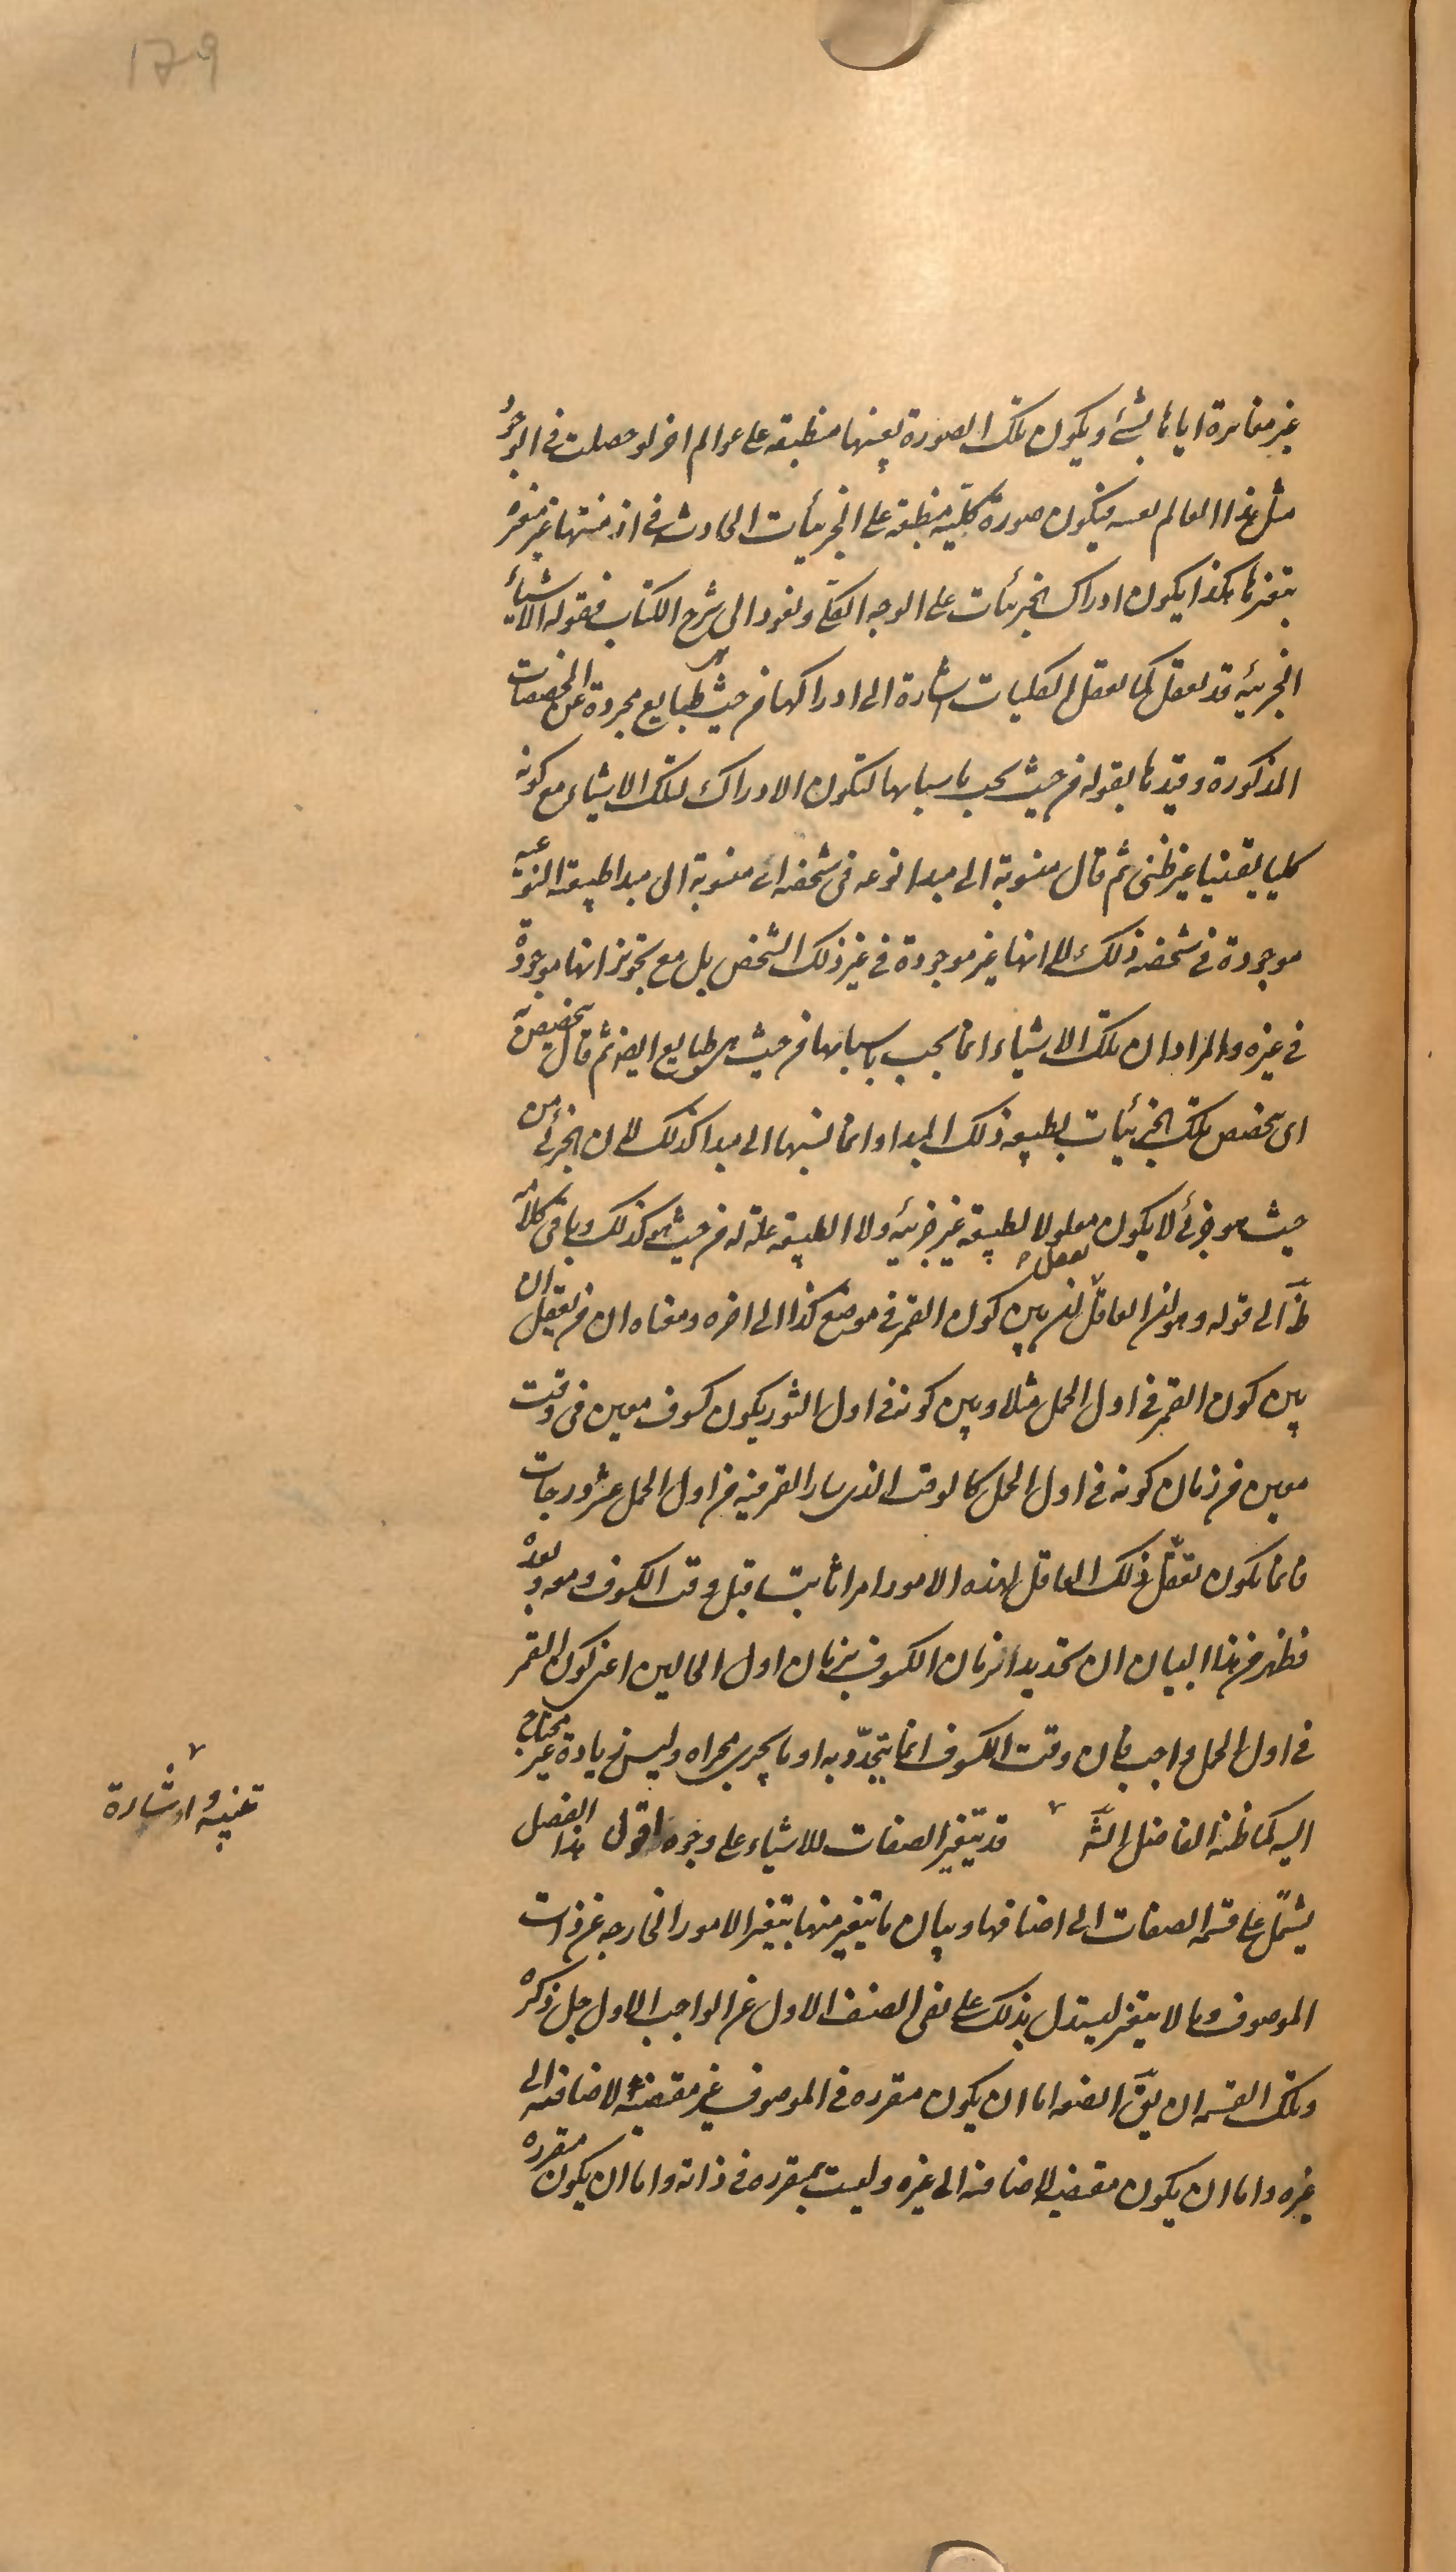 179
غير مغايرة اياها بشئ ويكون تلك الصورة بعينها منطبقه على عوالم اخر لو حصلت فى الوجود
مثل هذا العالم بعينه فيكون صورة كليّة منطبقة على الجزئيات الحادثه فى ازمنتها غير متغيره
بتغيرها هكذا يكون ادراك الجزئيات على الوجه الكلى ونعود الى شرح الكتاب فقوله الاشياء
الجزئيه قد تعقل كما تعقل الكليات اشارة الى ادراكها من حيث هى طبايع مجردة عن المخصصات
المذكورة وقيدها بقوله من حيث يجب باسبابها لتكون الادراك لتلك الاشياء مع كونه
كليا يقينيا غير ظنى ثم قال منسوبة الى مبدا نوعه فى شخصه اى منسوبة الى مبدا طبيعته النوعيه
موجودة فى شخصه ذلك لا انها غير موجودة فى غير ذلك الشخص بل مع تجويز انها موجودة
فى غيره والمراد ان تلك الاشياء انما يجب باسبابها من حيث هى طبايع ايضا ثم قال تتخصص به
اى تتخصص تلك الجزئيات بطبيعه ذلك المبدا وانما نسبها الى مبدا كذلك لان الجزئى من
حيث هو جزئى لا يكون معلولا لطبيعة غير جزئيه ولا الطبيعه علة له من حيث هو كذلك وباقى كلامه
ظَ الى قوله وهو لان العاقل لان بين كون القمر فى موضع كذا الى اخره ومعناه ان من يعقل ان
تعقل
بين كون القمر فى اول الحمل مثلا وبين كونه فى اول الثور يكون كسوف معين فى وقت
معين من زمان كونه فى اول الحمل كالوقت الذى سار القمر فيه من اول الحمل عشر درجات
فانما يكون تعقل ذلك العاقل لهذه الامور امرا ثابتا قبل وقت الكسوف ومعه وبعده
فظهر من هذا البيان ان تحديد زمان الكسوف بزمان اول الحالين اعنى كون القمر
فى اول الحمل واجب فان وقت الكسوف انما يتحدّد به او ما يجرى مجراه وليس زيادة غير محتاج
اليه كما ظنه الفاضل الشَ قد يتغير الصفات للاشياء على وجوه اقول هذا الفصل
تنبيه واشارة
يشتمل على قسمه الصفات الى اصنافها وبيان ما يتغير منها بتغير الامور الخارجه عن ذات
الموصوف وما لا يتغير ليستدل بذلك على نفى الصنف الاول عن الواجب الاول جل ذكره
وتلك القسمه ان يقَ الصفه اما ان يكون مقرره فى الموصوف غير مقتضيه لاضافته الى
غيره واما ان يكون مقتضيه لاضافته الى غيره وليست بمقرره فى ذاته واما ان يكون مقرره